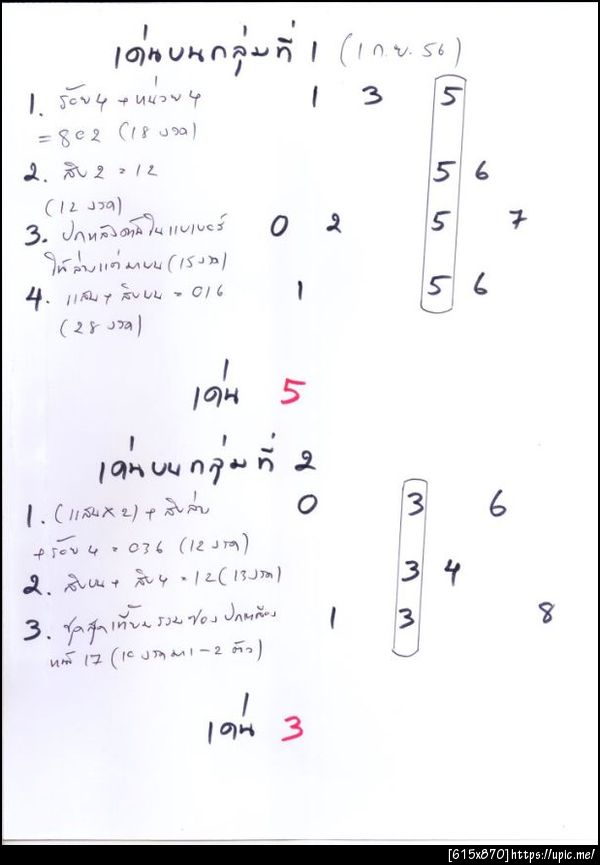 เด่นบนกลุ่มที่ 1 (1 ก.ย. 56)
1. ร้อย 4 + หน่วย 4 1 3 5
= 802 (18 งวด)
2. สิบ 2 = 12 5 6
(12 งวด)
3. ปกหลัง ในแบเบอร์ 0 2 5 7
ให้ล่างแต่มาบน (15 งวด)
4. แสน + สิบบน = 016 1 5 6
(28 งวด)
เด่น 5
เด่นบนกลุ่มที่ 2
1. (แสน x 2) + สิบล่าง 0 3 6
+ ร้อย 4 = 036 (12 งวด)
2. สิบบน + สิบ 4 = 12 (13 งวด) 3 4
3. ชุดสุดเหี้ยมรวมซองปกหลัง 1 3 8
17 (10 งวดมา 1-2 ตัว)
เด่น 3
[615x870]https://upic.me/